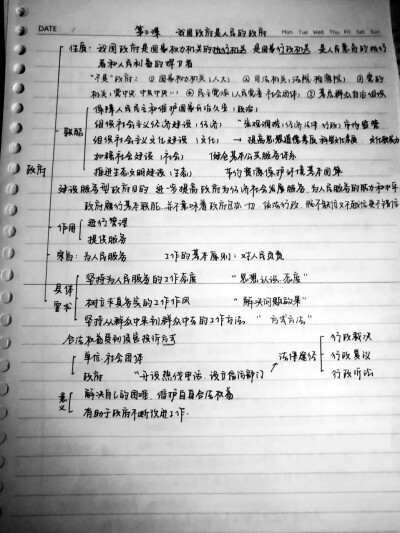 DATE
第三课 我国政府是人民的政府
Mon Tue Wed Thu Fri Sat Sun
政府
性质：我国政府是国家权力机关的执行机关 是国家行政机关 是人民意旨的执行
者和人民利益的捍卫者
"不是"政府：① 国家权力机关（人大） ② 司法机关（法院、检察院） ③ 党的
机关（党中央 ④ 民主党派 人民团体 社会团体 ⑤ 基层群众自治组织
职能
保障人民民主和维护国家长治久安（政治）
组织社会主义经济建设（经济） 市场监管
组织社会主义文化建设（文化） → 提高思想道德素质 科学文化素质
加强社会建设（社会） 健全基本公共服务体系
推进生态文明建设（生态） 节约资源保护环境基本国策
建设服务型政府目的 进一步提高政府为经济社会发展服务、为人民服务的能力和水平
政府履行基本职能，并不意味着政府包办一切，依法行政，既不缺位又不越位更不错位
作用
进行管理
提供服务
宗旨：为人民服务 工作的基本原则：对人民负责
具体要求
坚持为人民服务的工作态度 "思想认识、态度"
树立求真务实的工作作风 "解决问题效果"
坚持从群众中来到群众中去的工作方法 "方式方法"
合法权益受到侵害投诉方式
单位、社会团体
政府 "开设热线电话、设立信访部门
法律途径
行政裁决
行政复议
行政诉讼
意义
解决自己的困难、维护自身合法权益
有助于政府不断改进工作.